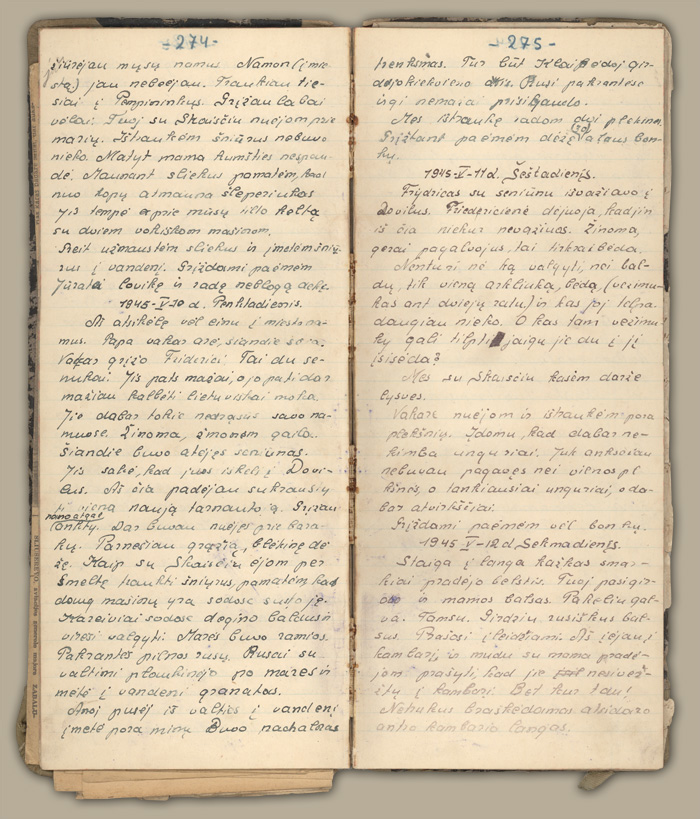 -274-
žiūrėjau mųsų namus. Namon (į mie-
stą) jau nebeėjau. Traukiau tie-
siai į Pempininkus. Grįžau labai
vėlai. Tuoj su Skaisčiu nuėjom prie
marių. Ištraukėm šniūrus nebuvo
nieko. Matyt mama kumšties nespau-
dė. Maunant sliekus pamatėm, kad
nuo kopų atmauna šleperiukas
Jis tempė prie mūsų tilto keltą
su dviem vokiškom mašinom.
Greit užmaustėm sliekus ir įmetėm šniū-
rus į vandenį. Grįždami paėmėm
1945-V-10 d. Penktadienis.
Aš atsikėlęs vėl einu į miestą na-
mus. Papa vakar ore, šiandie
grįžo Friderici. Tai du se-
nukai. Jis pats mažai, o jo pati dar
mažiau kalbėti lietuviškai moka.
Jie dabar tokie nedrąsus savo na-
muose. Žinoma, žmonem gaila.
Šiandie buvo atėjęs seniūnas.
Jis sakė, kad juos iškelsį Dovi-
lus. Aš čia padėjau sukraustų
ti vieną naują tarnautoją. Grįžau
namo apie
Dar buvau nuėjęs prie bara-
kų. Parnešiau gražią, blėkinę dė-
žę. Kaip su Skaisčiu ėjom per
Smeltę traukti šniūrus, pamatėm, kad
daug mašinų yra sodose sustoję.
Kareiviai sodose degino balđus ir
virėsi valgyti. Marės buvo ramios.
Pakrantės pilnos rusų. Rusai su
valtimi plaukinėjo po mares ir
metė į vandenį granatas.
Anoj pusėj iš valties į vandenį
įmetė porą minų. Buvo nachališkas
-275-
trenksmas. Tur būt Klaipėdoj gir-
dėjo kiekvieno ausis. Rusi pakrantėse
irgi nemažai prisigaudo.
Mes ištraukę radom dvi plekšnes.
Grįžtant paėmėm dėžę
kų.
1945-V-11 d. Šeštadienis.
Frydricas su seniūnu išvažiavo į
Dovilus. Friedericienė dejuoja, kad jin
iš čia niekur nevažiuos. Žinoma,
gerai pagalvojus, tai tikrai bėda.
Neturi nė ką valgyti, nei bal-
dų, tik vieną arkliuką, bėdą, (vežimu-
kas ant dviejų ratų) ir kas joj telpa
daugiau nieko. O kas tam vežimu-
ky gali tilpti jaigu jie du į jį
įsisėda?
Mes su Skaisčiu kasėm darže
lysves.
Vakare nuėjom ir ištraukėm pora
plekšnių. Įdomu, kad dabar ne-
kimba unguriai. Juk anksčiau
nebuvau pagavęs nei vienos ple
kšnės, o tankiausiai unguriai, o da-
bar atvirkščiai.
Grįždami paėmėm vėl bonkų.
1945 V-12 d. Sekmadienis.
Staiga į langą kažkas smar-
kiai pradėjo belstis. Tuoj pasigir-
do ir mamos balsas. Pakeliu gal-
va. Tamsu. Girdžiu rusiškus bal-
sus. Prašosi įleidžiami. Aš įėjau į
kambarį, ir mudu su mama pradė-
jom prašyti, kad jie nesiverž-
žtų į kambarį. Bet kur tau!
Netrukus braškėdamas atsidaro
antro kambario langas.